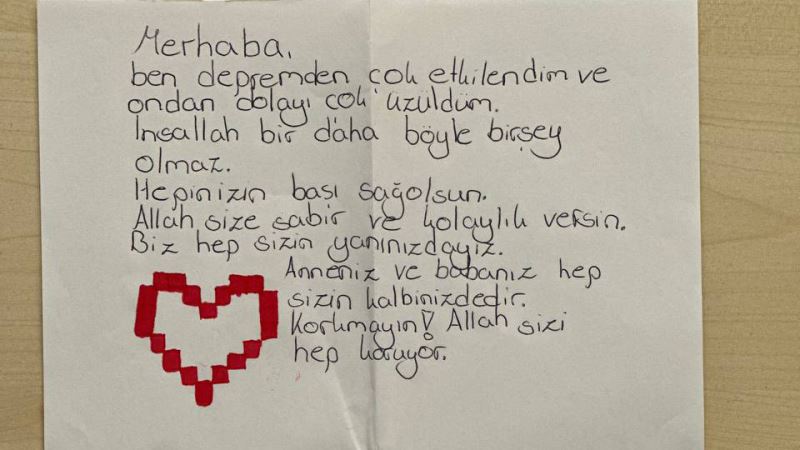 Merhaba,
ben depremden çok etkilendim ve
ondan dolayı çok üzüldüm.
İnşallah bir daha böyle birşey
olmaz.
Hepinizin başı sağolsun.
Allah size sabir ve kolaylık versin.
Biz hep sizin yanınızdayız.
Anneniz ve babanız hep
sizin kalbinizdedir.
Korkmayın! Allah sizi
hep koruyor.